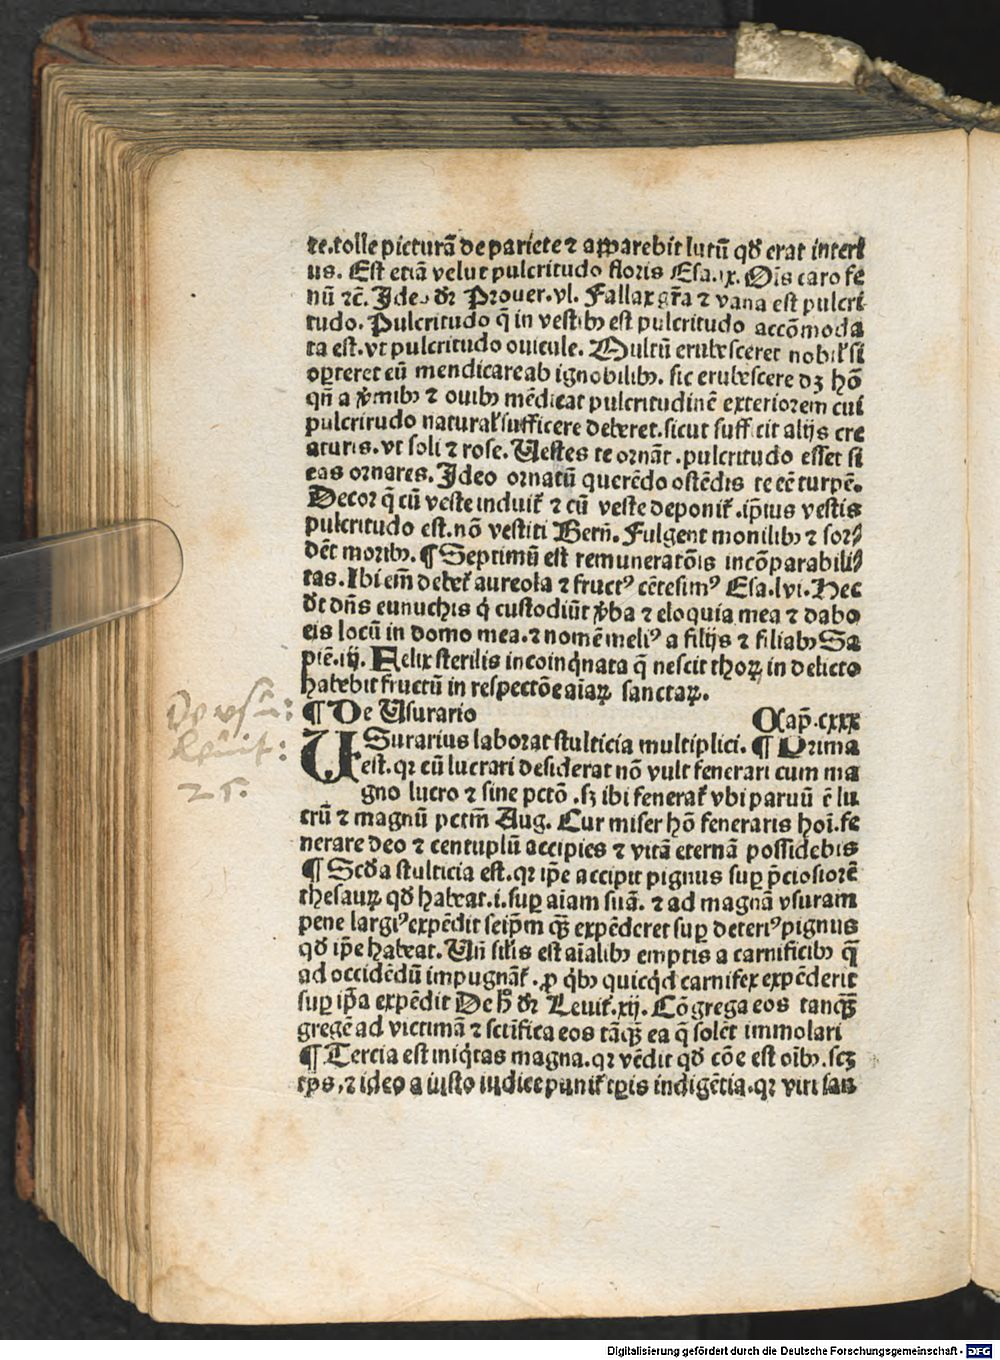 te.tolle picturā de pariete ⁊ apparebit lutū qd̄ erat interi
us. Est etiā velut pulcritudo floris Esa.ix. Oīs caro fe
nū ⁊c̄. Ideo dr̄ Prouer.vl. Fallax gr̄a ⁊ vana est pulcri
tudo. Pulcritudo q̄ in vestibꝫ est pulcritudo accōmoda
ta est.vt pulcritudo ouicule. Multū erubesceret nobil̕ si
oꝑteret eū mendicare ab ignobilibꝫ. sic erubescere dꝫ hō
qn̄ a v̄mibꝫ ⁊ ouibꝫ mēdicat pulcritudinē exteriorem cui
pulcritudo natural̕ sufficere deberet.sicut sufficit alijs cre
aturis.vt soli ⁊ rose. Uestes te ornāt .pulcritudo esset si
eas ornares. Ideo ornatū querēdo ostēdis te eē turpē.
Decor q̄ cū veste induit̕ ⁊ cū veste deponit̕ .ip̄ius vestis
pulcritudo est.nō vestiti Bern̄. Fulgent monilibꝫ ⁊ sor⸗
dēt moribꝫ. ¶ Septimū est remuneratōis incōparabili⸗
tas. Ibi em̄ debet̕ aureola ⁊ fructꝰ cētesimꝰ Esa.lvi. Hec
dt̄ dn̄s eunuchis q̇ custodiūt v̄ba ⁊ eloquia mea ⁊ dabo
eis locū in domo mea.⁊ nomē meliꝰ a filijs ⁊ filiabꝫ Sa
piē.iij. Felix sterilis incoinq̇nata q̄ nescit thoꝝ in delicto
habebit fructū in respectōe aīaꝝ sanctaꝝ.
¶ De Usurario Cap̄.cxxx
USurarius laborat stulticia multiplici. ¶ Prima
est.qꝛ cū lucrari desiderat nō vult fenerari cum ma
gno lucro ⁊ sine pctō .sꝫ ibi fenerat̕ vbi paruū ē lu
crū ⁊ magnū pctm̄ Aug. Cur miser hō feneraris hoī.fe
nerare deo ⁊ centuplū accipies ⁊ vitā eternā possidebis
¶ Scd̄a stulticia est.qꝛ ip̄e accipit pignus suꝑ p̄ciosiorē
thesauꝝ qd̄ habeat.i.suꝑ aīam suā. ⁊ ad magnā vsuram
pene largiꝰ expēdit seip̄m qꝫ̄ expēderet suꝑ deteriꝰ pignus
qd̄ ip̄e habeat. Un̄ silis est aīalibꝫ emptis a carnificibꝫ q̄
ad occidēdū impugnāt̕ .ꝓ q̇bꝫ quicq̇d carnifex expēderit
suꝑ ip̄a expēdit De h̄ dr̄ Leuit̕.xij. Cōgrega eos tanqꝫ̄
gregē ad victimā ⁊ sctīfica eos tāqꝫ̄ ea q̄ solēt immolari
¶ Tercia est iniq̇tas magna.qꝛ vēdit qd̄ cōe est oībꝫ.scꝫ
tp̄s.⁊ ideo a iusto iudice punit̕ tꝑis indigētia.qꝛ viri san
De vsur:
Leuit:
25.
Digitalisierung gefördert durch die Deutsche Forschungsgemeinschaft - DFG